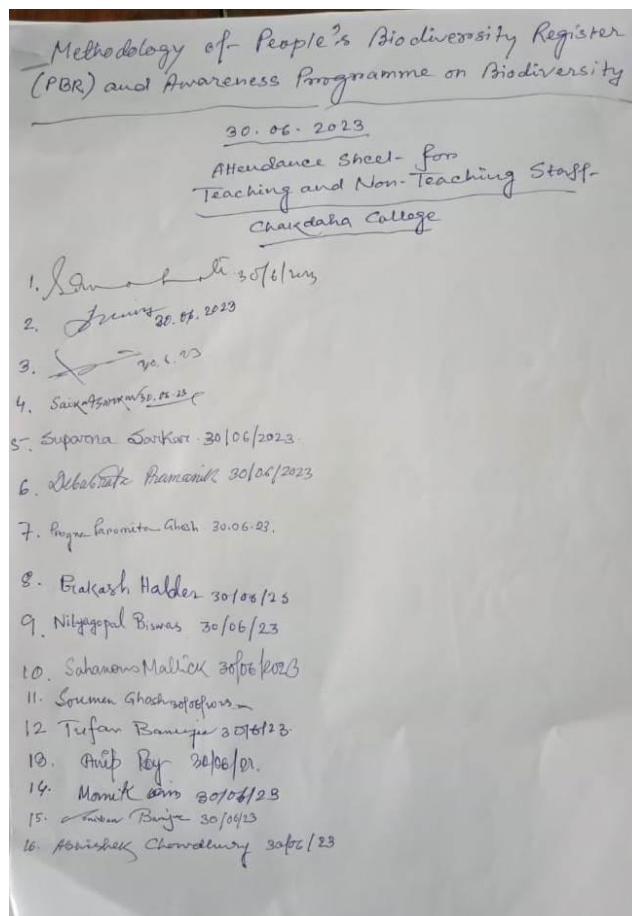 Methodology of People's Biodiversity Register
(PBR) and Awareness Programme on Biodiversity
30.06.2023
Attendance Sheet for
Teaching and Non-Teaching Staff
Chakdaha College
1. 30/6/2023
2. 30.06.2023
3. 30.6.23
4. Saikat Sarkar 30.06.23
5. Suparna Sarkar 30/06/2023
6. Debabrata Pramanik 30/06/2023
7. Paromita Ghosh 30.06.23.
8. Prakash Halder 30/06/23
9. Nityagopal Biswas 30/06/23
10. Mallick 30/06/2023
11. Soumen Ghosh 30/06/2023
12 Tufan Banerjee 30/6/23
13. Roy 30/06/
14. 30/06/23
15. 30/06/23
16. Abhishek Chowdhury 30/06/23